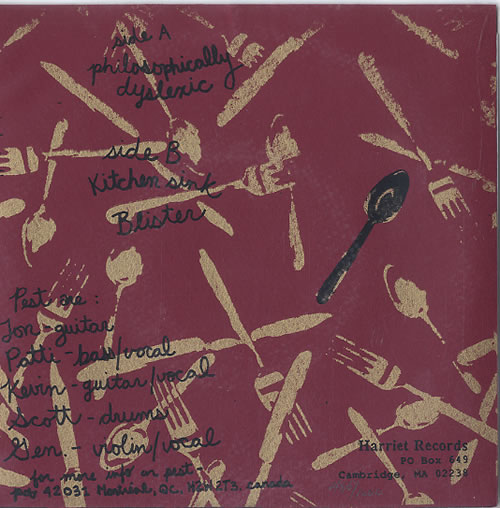 side A
philosophically
dyslexic
side B
Kitchen sink
Blister
Pest are :
Jon - guitar
Patti - bass/vocal
Kevin - guitar/vocal
Scott - drums
Gen. - violin/vocal
for more info on pest -
pob 42031 Montréal, QC. H2W2T3. canada
Harriet Records
PO Box 649
Cambridge, MA 02238